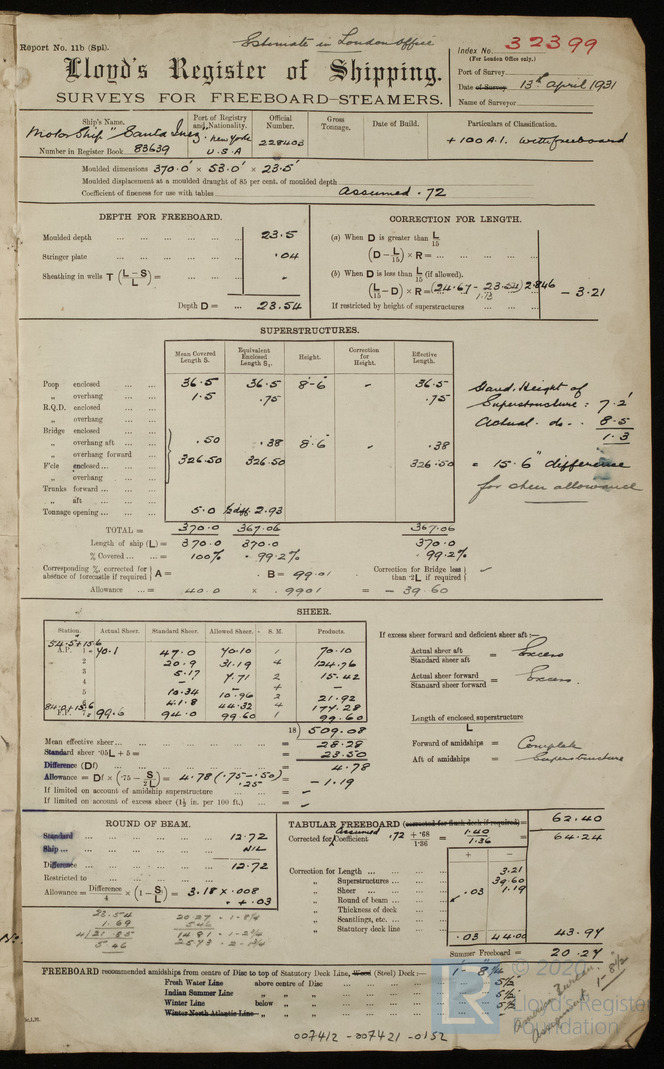 Report No. 11b (Spl).
Estimate in London Office
Index No. 32399
(For London Office only.)
Lloyd's Register of Shipping.
SURVEYS FOR FREEBOARD–STEAMERS.
Port of Survey
Date of Survey 13th April 1931
Name of Surveyor
Ship's Name.
Port of Registry and Nationality.
Official Number.
Gross Tonnage.
Date of Build.
Particulars of Classification.
Motor Ship "Santa Inez
New York
U.S.A
228403
+100A.1. with freeboard
Number in Register Book 83639
Moulded dimensions 370.0' × 53.0' × 23.5'
Moulded displacement at a moulded draught of 85 per cent. of moulded depth
Coefficient of fineness for use with tables Assumed .72
DEPTH FOR FREEBOARD.
Moulded depth ... 23.5
Stringer plate ... .04
Sheathing in wells T (L–S / L) = -
Depth D = ... 23.54
CORRECTION FOR LENGTH.
(a) When D is greater than L/15
(D – L/15) × R = ...
(b) When D is less than L/15 (if allowed).
(L/15 – D) × R = (24.67 - 23.54) 2.846
1.13
– 3.21
If restricted by height of superstructures
SUPERSTRUCTURES.
Mean Covered Length S. Equivalent Enclosed Length S₁. Height. Correction for Height. Effective Length.
Poop enclosed 36.5 36.5 8'-6" - 36.5
„ overhang 1.5 .75 .75
R.Q.D. enclosed
„ overhang
Bridge enclosed
„ overhang aft .50 .38 8'.6" - .38
„ overhang forward
F'cle enclosed 326.50 326.50 326.50
„ overhang
Trunks forward
„ aft
Tonnage opening 5.0 2.93
TOTAL = 370.0 367.06 367.06
Length of ship (L) = 370.0 370.0 370.0
% Covered = 100% .99.2% .99.2%
Corresponding %, corrected for absence of forecastle if required } A = . B = 99.01
Correction for Bridge less than .2L if required } -
Allowance = 40.0 × .9901 = – 39.60
Stand. Height of
Superstructure = 7.2'
Actual. do. 8.5
1.3
= 15.6" difference
for sheer allowance
SHEER.
Station. Actual Sheer. Standard Sheer. Allowed Sheer. S. M. Products.
54.5+15.6
A.P. 1 70.1 47.0 70.10 1 70.10
2 20.9 31.19 4 124.76
3 5.17 7.71 2 15.42
4 - - 4 -
5 10.34 10.96 2 21.92
41.8 44.32 4 177.28
84.0+15.6
F.P. 7 99.6 94.0 99.60 1 99.60
18) 509.08
Mean effective sheer = 28.28
Standard sheer .05L + 5 = = 23.50
Difference (Df) = 4.78
Allowance = Df × (.75 – S/2L) = 4.78 (.75 - .50) = – 1.19
.25
If limited on account of amidship superstructure =
If limited on account of excess sheer (1½ in. per 100 ft.) =
If excess sheer forward and deficient sheer aft :—
Actual sheer aft / Standard sheer aft = Excess
Actual sheer forward / Standard sheer forward = Excess.
Length of enclosed superstructure / L
Forward of amidships = Complete
Aft of amidships = Superstructure
ROUND OF BEAM.
Standard 12.72
Ship NIL
Difference 12.72
Restricted to
Allowance = Difference/4 × (1 – S/L) = 3.18 × .008
= + .03
23.54
1.69
4)21.85
5.46
20.27 . 1-8¼
5.46
14.81 . 1-2¾
25.73 . 2-1¾
TABULAR FREEBOARD (corrected for flush deck if required) = 62.40
Corrected for Assumed Coefficient .72 + .68 / 1.36 = 1.40 / 1.36 64.24
+ –
Correction for Length 3.21
„ Superstructures 39.60
„ Sheer .03 1.19
„ Round of beam
„ Thickness of deck
„ Scantlings, etc.
„ Statutory deck line
.03 44.00 43.97
Summer Freeboard = 20.27
FREEBOARD recommended amidships from centre of Disc to top of Statutory Deck Line, Wood (Steel) Deck :— 1'- 8¼
Fresh Water Line above centre of Disc 5½"
Indian Summer Line „ „ „ 5½"
Winter Line below „ „ 5½"
Winter North Atlantic Line „ „ „ -
American Bureau
Assignment 1-8½
© 202
Lloyd's Register
Foundation
LR
007412 - 007421 - 0152